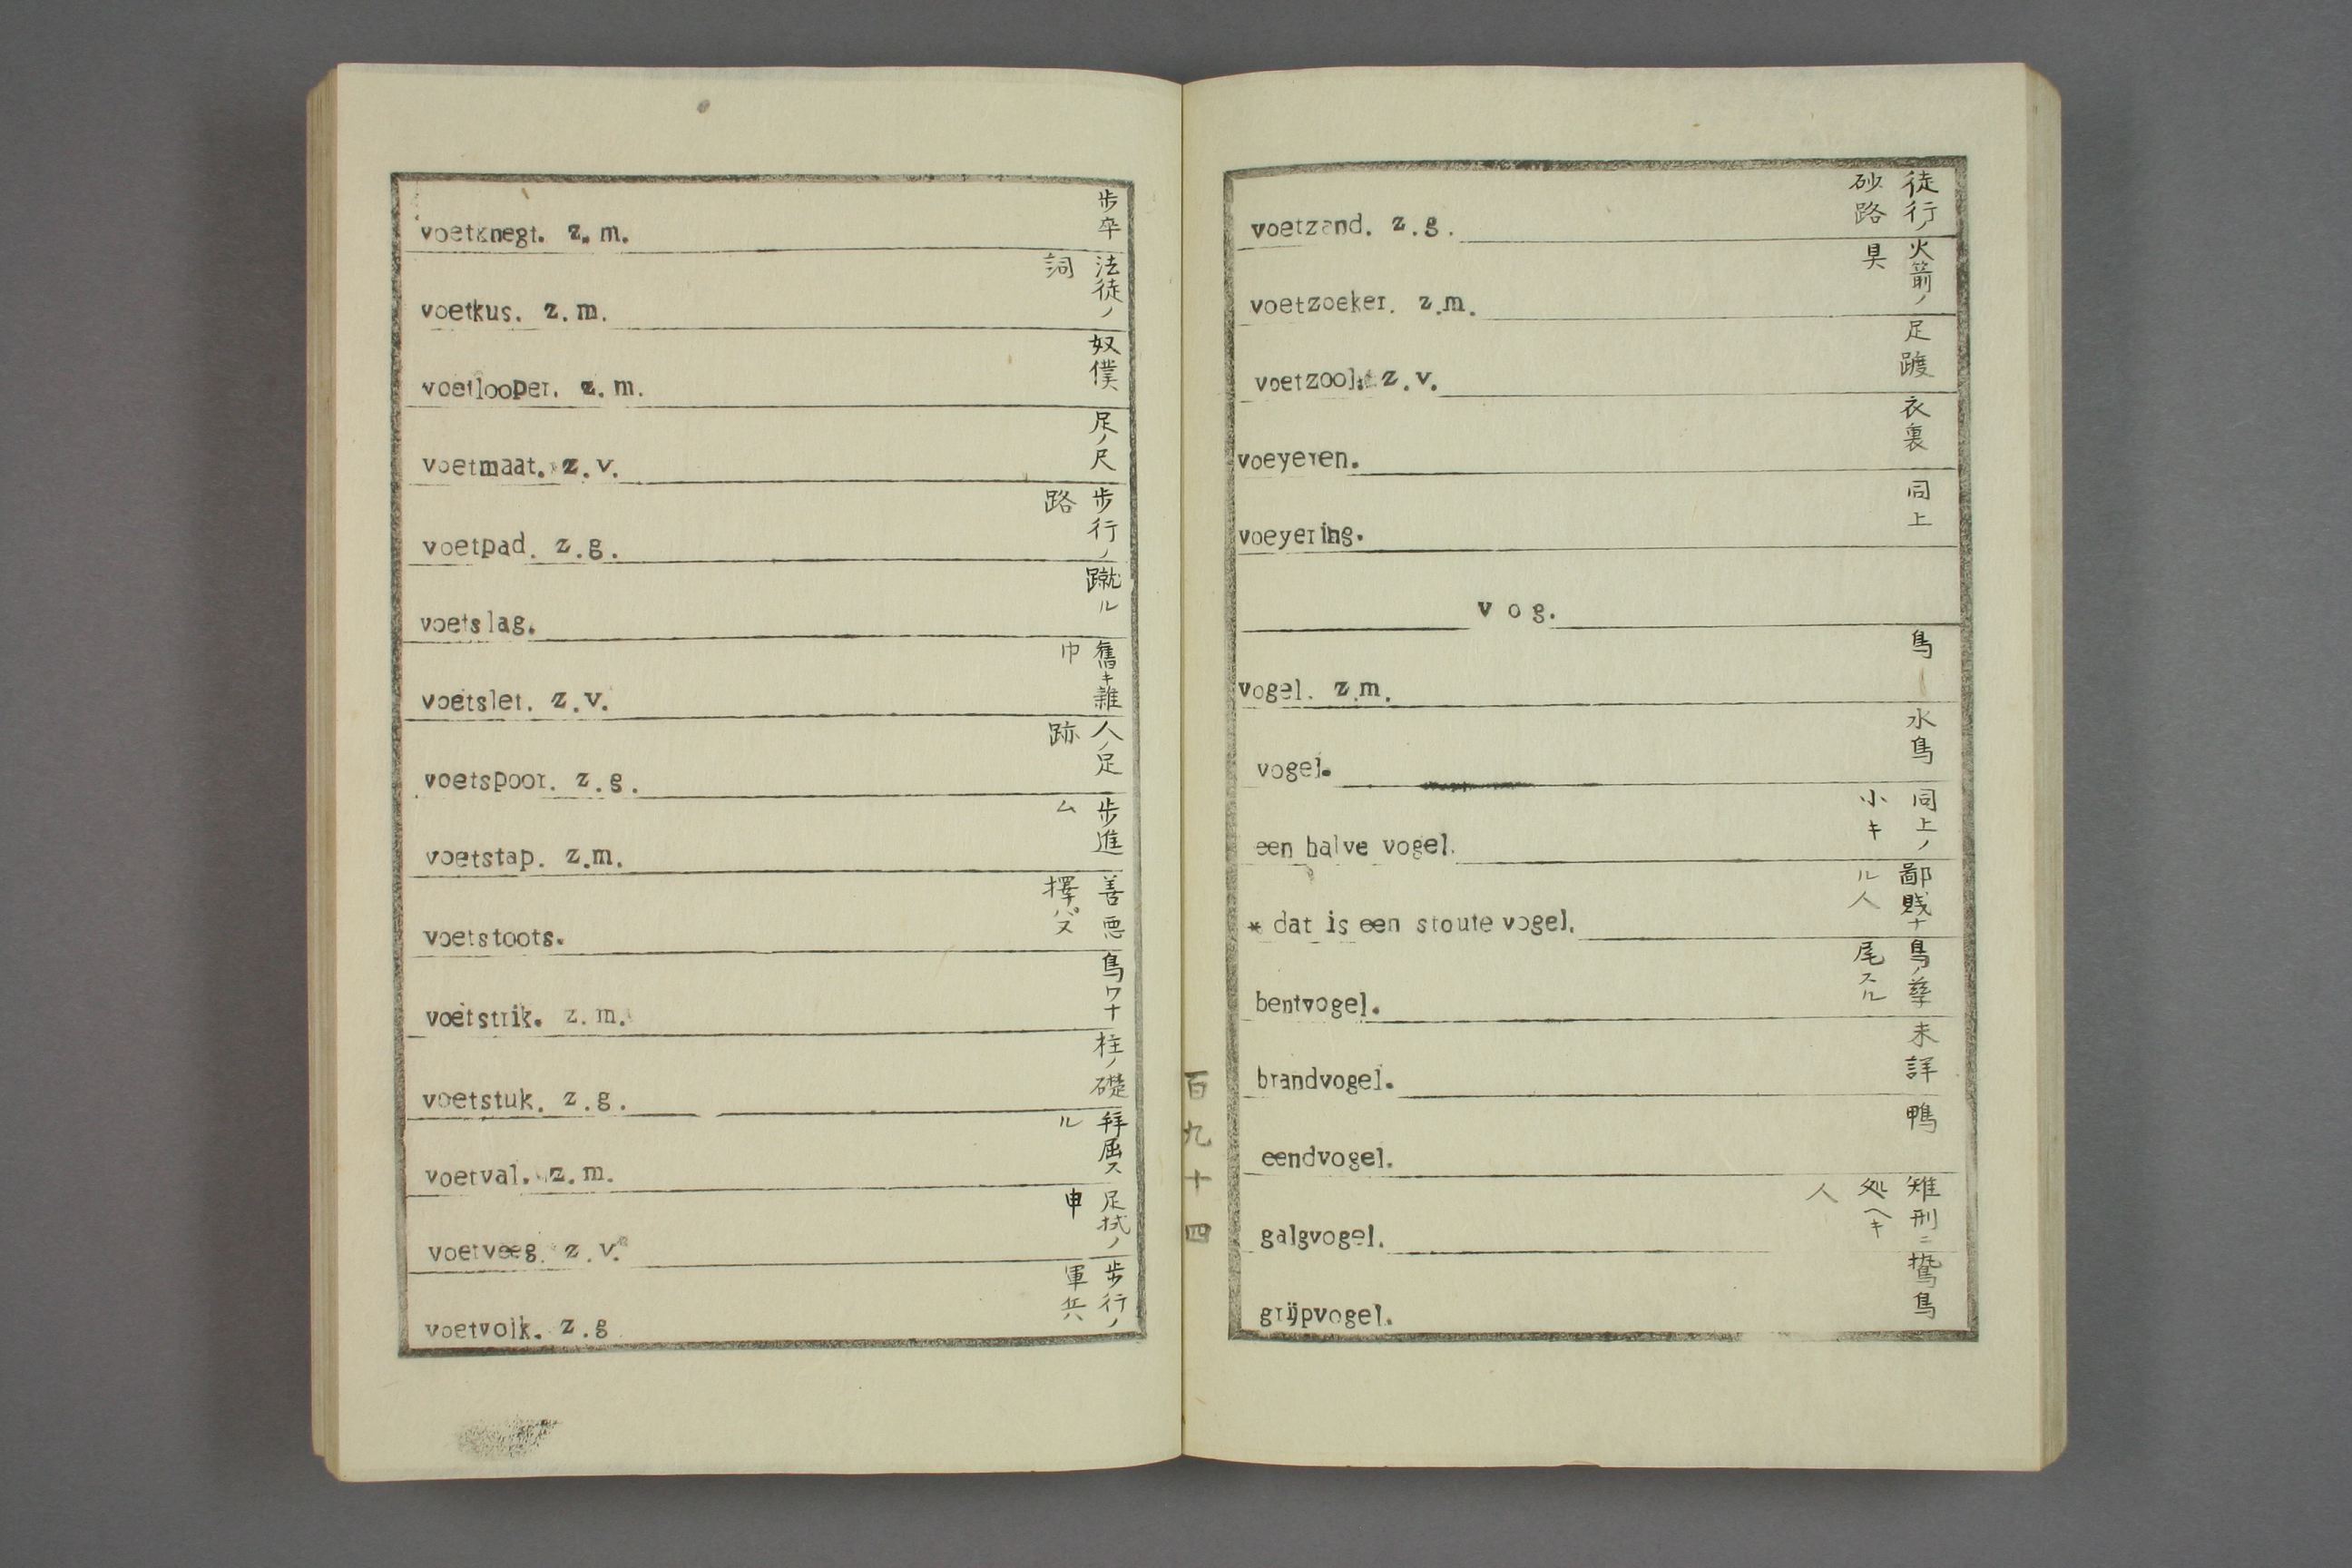 voetknegt. z. m. 歩卒
voetkus. z. m. 法徒ノ詞
voetlooper. z. m. 奴僕
voetmaat. z. v. 足ノ尺
voetpad. z. g. 歩行ノ路
voetslag. 蹴ル
voetslet. z. v. 舊キ雜巾
voetspoor. z. g. 人ノ足跡
voetstap. z. m. 歩進ム
voetstoots. 善悪擇バヌ
voetstrik. z. m. 鳥ワナ
voetstuk. z. g. 柱ノ礎
voetval. z. m. 拜屈スル
voetveeg. z. v. 足拭ノ申
voetvolk. z. g 歩行ノ軍兵
百九十四
voetzand. z. g. 徒行ノ砂路
voetzoeker. z. m. 火箭ノ具
voetzool. z. v. 足
voeyeren. 衣裏
voeyering. 同上
v o g.
vogel. z. m. 鳥
vogel. 水鳥
een halve vogel. 同上ノ小キ
* dat is een stoute vogel. 鄙賎ナル人
bentvogel. 鳥ノ孳尾スル
brandvogel. 未詳
eendvogel. 鴨
galgvogel. 刑ニ処ヘキ人
grijpvogel. 鷙鳥